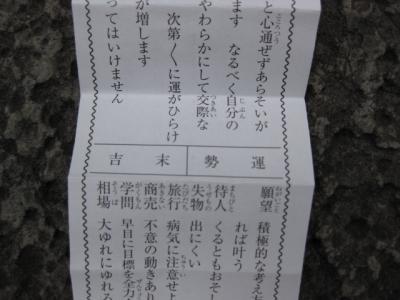 と心通ぜずあらそいが
ます なるべく自分の
やわらかにして交際な
次第〱に運がひらけ
が増します
ってはいけません
運勢
末吉
願望 積極的な考え方
れば叶う
待人 くるともおそし
失物 出にくい
旅行 病気に注意せよ
商売 不意の動きあり
学問 早目に目標を全力
相場 大ゆれにゆれる